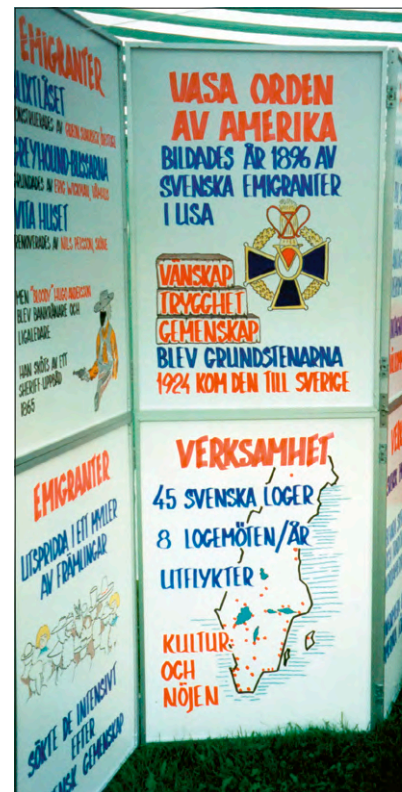 EMIGRANTER
BLIXTLÅSET
KONSTRUERADES AV
GREYHOUND-BUSSARNA
GRUNDADES AV ERIC WICKMAN, VÅMHUS
VITA HUSET
RENOVERADES AV NILS PERSSON, SKÅNE
MEN "BLOODY" HUGO ANDERSSON
BLEV BANKRÅNARE OCH
LIGALEDARE
HAN SKÖTS AV ETT
SHERIFF UPPBÅD
1865
EMIGRANTER
UTSPRIDDA I ETT MYLLER
AV FRÄMLINGAR
SÖKTE DE INTENSIVT
EFTER
SVENSK GEMENSKAP
VASA ORDEN
AV AMERIKA
BILDADES ÅR 1896 AV
SVENSKA EMIGRANTER
I USA
VÄNSKAP
TRYGGHET
GEMENSKAP
BLEV GRUNDSTENARNA
1924 KOM DEN TILL SVERIGE
VERKSAMHET
45 SVENSKA LOGER
8 LOGEMÖTEN/ÅR
UTFLYKTER
KULTUR
OCH
NÖJEN